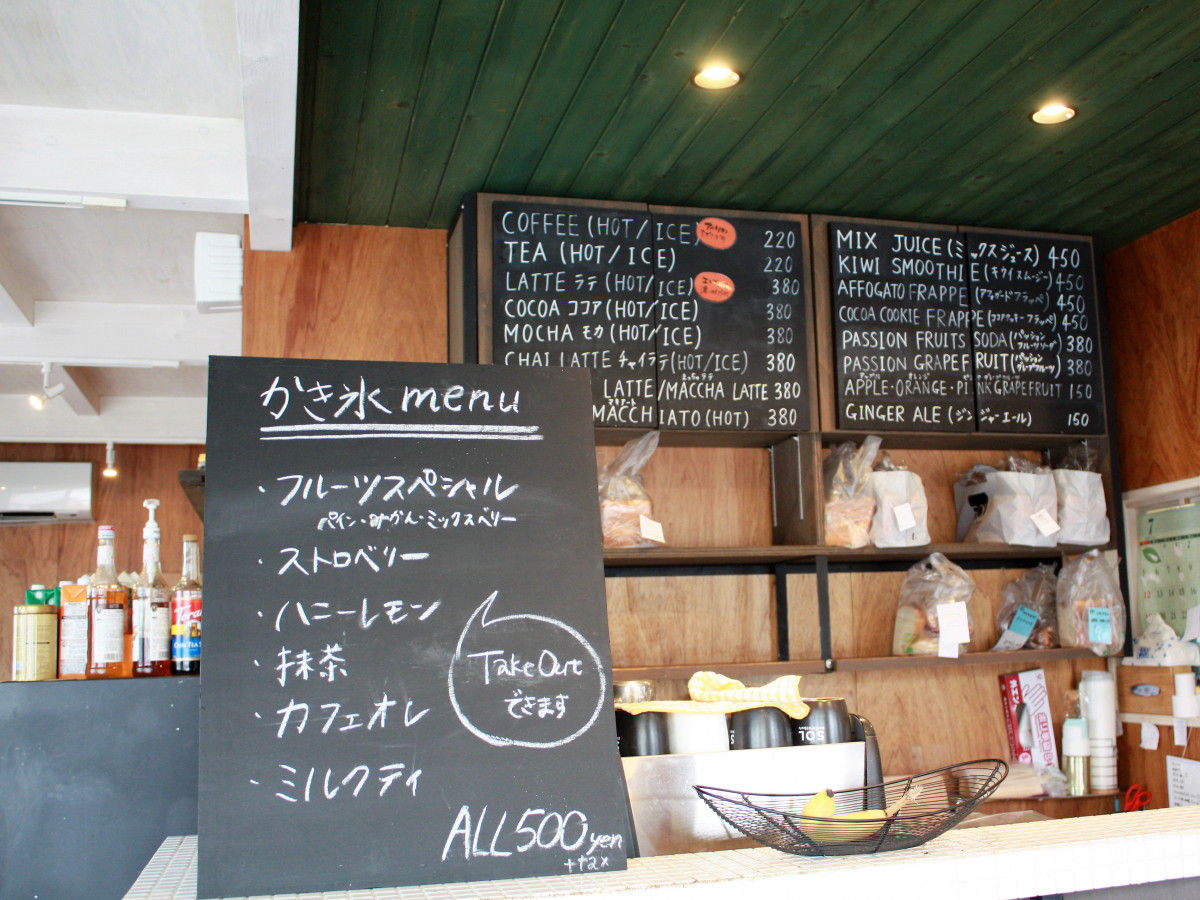 かき氷 menu
・フルーツスペシャル
パイン・みかん・ミックスベリー
・ストロベリー
・ハニーレモン
・抹茶
・カフェオレ
・ミルクティ
Take Out
できます
ALL500yen
COFFEE (HOT/ICE) 220
TEA (HOT/ICE) 220
LATTE ラテ (HOT/ICE) 380
COCOA ココア (HOT/ICE) 380
MOCHA モカ (HOT/ICE) 380
CHAI LATTE チャイラテ (HOT/ICE) 380
LATTE/MACCHA LATTE 380
MACCHIATO (HOT) 380
MIX JUICE (ミックスジュース) 450
KIWI SMOOTHIE (キウイスムージー) 450
AFFOGATO FRAPPE (アフォガードフラッペ) 450
COCOA COOKIE FRAPPE (ココアクッキーフラッペ) 450
PASSION FRUITS SODA (パッションフルーツソーダ) 380
PASSION GRAPEFRUIT (パッショングレープフルーツ) 380
APPLE・ORANGE・PINK GRAPEFRUIT 150
GINGER ALE (ジンジャーエール) 150
SOL
7